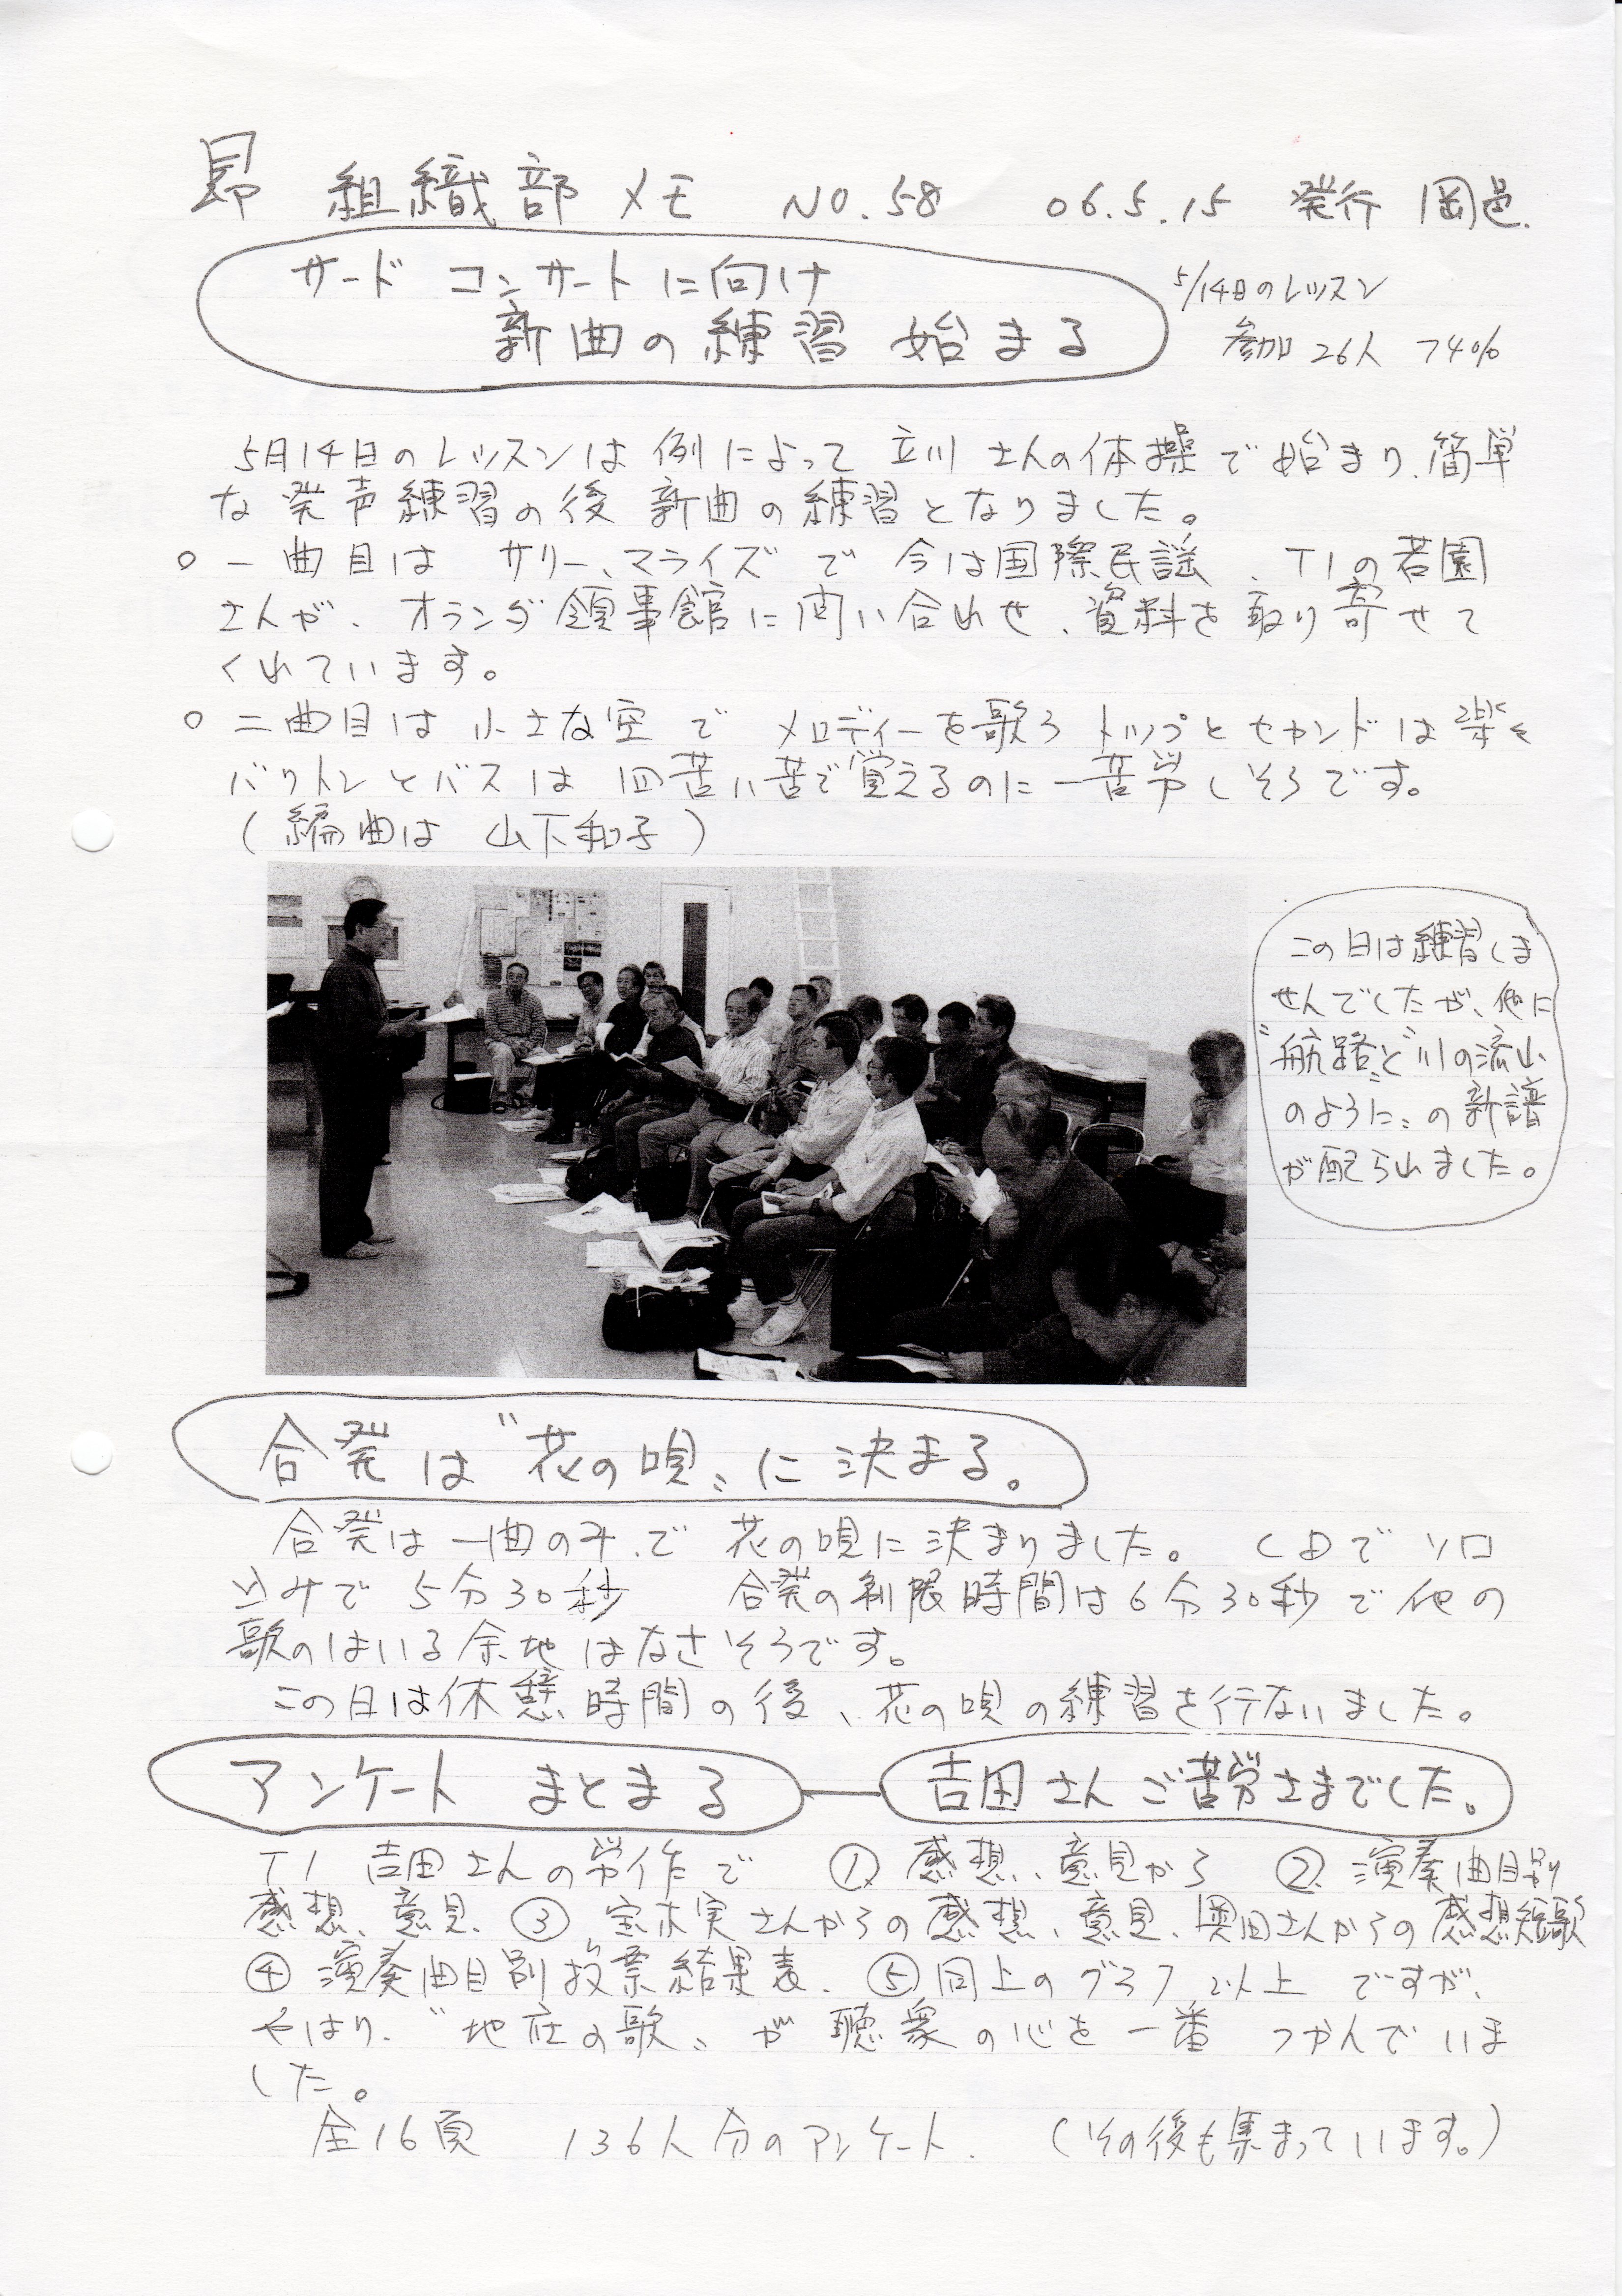 昴 組織部メモ NO.58 06.5.15 発行 岡邑.
サード コンサートに向け
新曲の練習 始まる
5/14日のレッスン
参加 26人 74%
5月14日のレッスンは 例によって 立川さんの体操で始まり、簡単
な発声練習の後 新曲の練習となりました。
○ 一曲目は サリー、マライズ で 今は国際民謡、T1の若園
さんが、オランダ領事館に問い合わせ、資料を取り寄せて
くれています。
○ 二曲目は 小さな空 で メロディーを歌う トップとセカンドは楽々
バリトンとバスは 四苦八苦で覚えるのに一苦労しそうです。
(編曲は 山下和子)
この日は練習しま
せんでしたが、他に
〝航路〟と〝川の流れ
のように〟の新譜
が配られました。
合発は〝花の唄〟に決まる。
合発は一曲のみで 花の唄に決まりました。 CDで ソロ
込みで 5分30秒 合発の制限時間は6分30秒で他の
歌のはいる余地はなさそうです。
この日は休憩時間の後、花の唄の練習を行ないました。
アンケート まとまる
吉田さん ご苦労さまでした。
T1 吉田さんの労作で ① 感想、意見から ② 演奏曲目別
感想、意見、③ 宝木実さんからの感想、意見、奥田さんからの感想短歌
④ 演奏曲目別投票結果表、⑤ 同上のグラフ 以上 ですが、
やはり、〝地在の歌〟が 聴衆の心を一番 つかんでいま
した。
全16頁 136人分のアンケート. (その後も集まっています。)